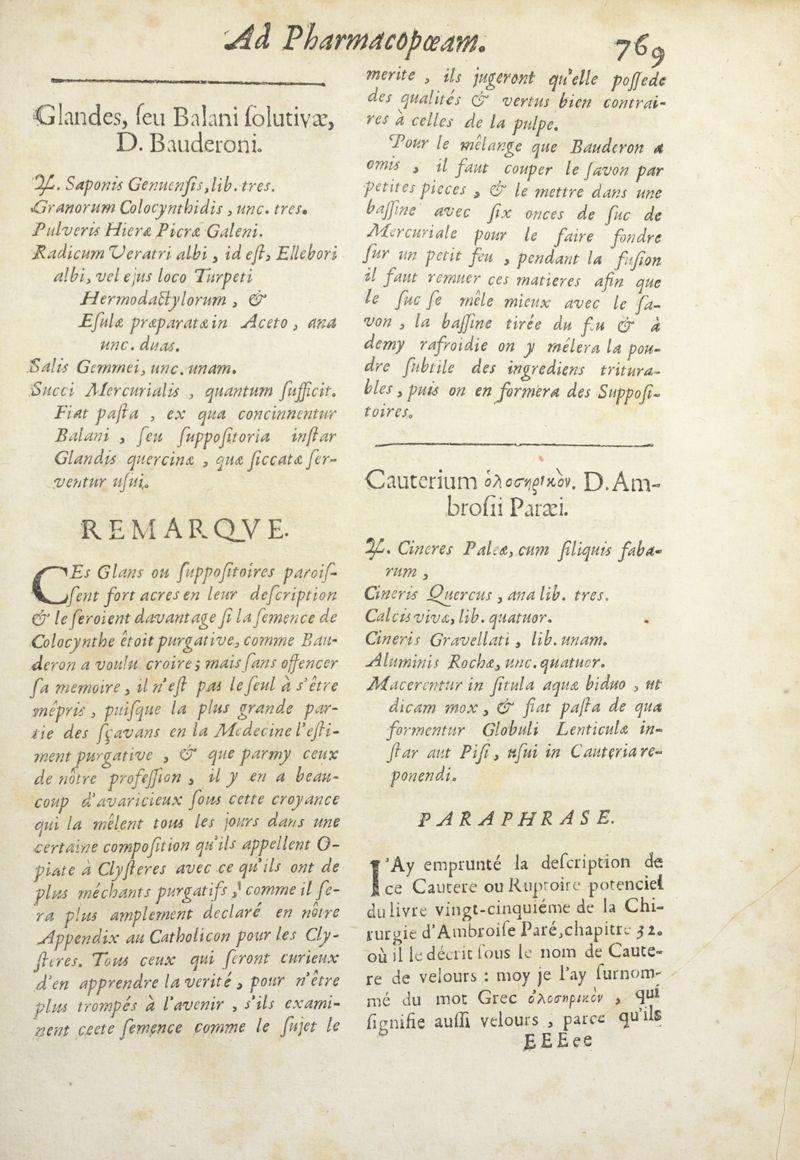 Ad Pharmacopœam. 769
Glandes, ſeu Balani ſolutivæ,
D. Bauderoni.
℞. Saponis Genuenſis, lib. tres.
Granorum Colocynthidis, unc. tres.
Pulveris Hieræ Picræ Galeni.
Radicum Veratri albi, id eſt, Ellebori
albi, vel ejus loco Turpeti
Hermodactylorum, &
Eſulæ præparatæ in Aceto, ana
unc. duas.
Salis Gemmei, unc. unam.
Succi Mercurialis, quantum ſufficit.
Fiat paſta, ex qua concinnentur
Balani, ſeu ſuppoſitoria inſtar
Glandis quercinæ, quæ ſiccatæ ſer-
ventur uſui.
REMARQVE.
CEs Glans ou ſuppoſitoires paroiſ-
ſent fort acres en leur deſcription
& le ſeroient davantage ſi la ſemence de
Colocynthe êtoit purgative, comme Bau-
deron a voulu croire; mais ſans offencer
ſa memoire, il n'eſt pas le ſeul à s'être
mépris, puiſque la plus grande par-
tie des ſçavans en la Medecine l'eſti-
ment purgative, & que parmy ceux
de nôtre profeſſion, il y en a beau-
coup d'avaricieux ſous cette croyance
qui la mêlent tous les jours dans une
certaine compoſition qu'ils appellent O-
piate à Clyſteres avec ce qu'ils ont de
plus méchants purgatifs, comme il ſe-
ra plus amplement declaré en nôtre
Appendix au Catholicon pour les Cly-
ſteres. Tous ceux qui ſeront curieux
d'en apprendre la verité, pour n'être
plus trompés à l'avenir, s'ils exami-
nent ceete ſemence comme le ſujet le
merite, ils jugeront qu'elle poſſede
des qualités & vertus bien contrai-
res à celles de la pulpe.
Pour le mêlange que Bauderon a
omis, il faut couper le ſavon par
petites pieces, & le mettre dans une
baſſine avec ſix onces de ſuc de
Mercuriale pour le faire fondre
ſur un petit feu, pendant la fuſion
il faut remuer ces matieres afin que
le ſuc ſe mêle mieux avec le ſa-
von, la baſſine tirée du feu & à
demy rafroidie on y mêlera la pou-
dre ſubtile des ingrediens tritura-
bles, puis on en formera des Suppoſi-
toires.
Cauterium ὁλοσηρικὸν. D. Am-
broſii Paræi.
℞. Cineres Paleæ, cum ſiliquis faba-
rum,
Cineris Quercus, ana lib. tres.
Calcis vivæ, lib. quatuor.
Cineris Gravellati, lib. unam.
Aluminis Rochæ, unc. quatuor.
Macerentur in ſitula aquæ biduo, ut
dicam mox, & fiat paſta de qua
formentur Globuli Lenticulæ in-
ſtar aut Piſi, uſui in Cauteria re-
ponendi.
PARAPHRASE.
I'Ay emprunté la deſcription de
ce Cautere ou Ruptoire potenciel
du livre vingt-cinquiéme de la Chi-
rurgie d'Ambroiſe Paré, chapitre 32.
où il le décrit ſous le nom de Caute-
re de velours: moy je l'ay ſurnom-
mé du mot Grec ὁλοσηρικὸν, qui
ſignifie auſſi velours, parce qu'ils
EEEee